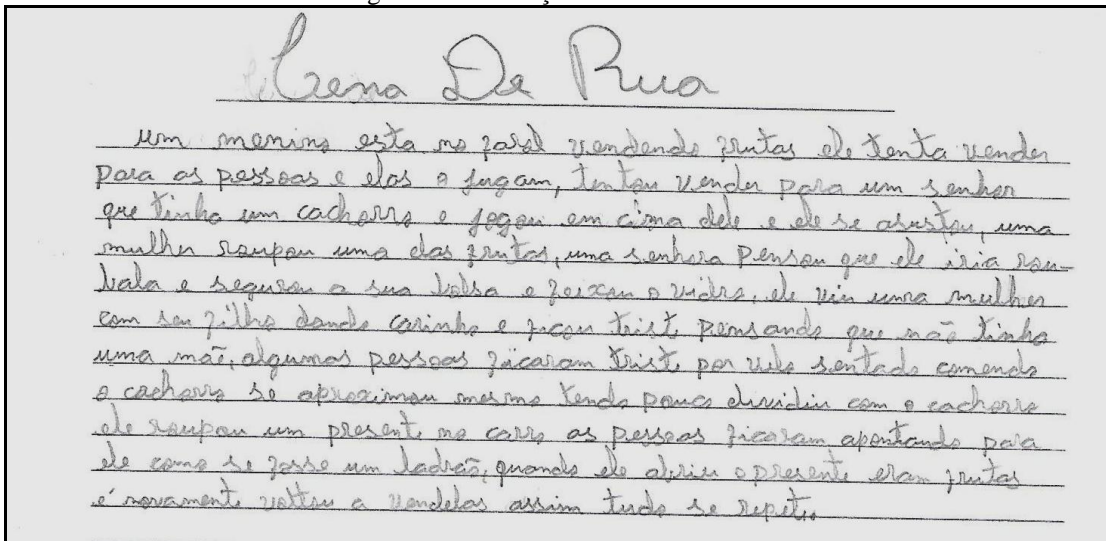 Cena De Rua
um menino esta no farol vendendo frutas ele tenta vender
para as pessoas e elas o jugam, tentou vender para um senhor
que tinha um cachorro e jogou em cima dele e ele se asustou, uma
mulher roupou uma das frutas, uma senhora pensou que ele iria rou-
bala e segurou a sua bolsa e feixou o vidro, ele viu uma mulher
com seu filho dando carinho e ficou trist pensando que não tinha
uma mãe, algumas pessoas ficaram trist por velo sentado comendo
o cachorro se aproximou mesmo tendo pouco dividiu com o cachorro
ele roupou um present no carro as pessoas ficaram apontando para
ele como se fosse um ladrão, quando ele abriu o presente eram frutas
é novament voltou a vendelas assim tudo se repete.